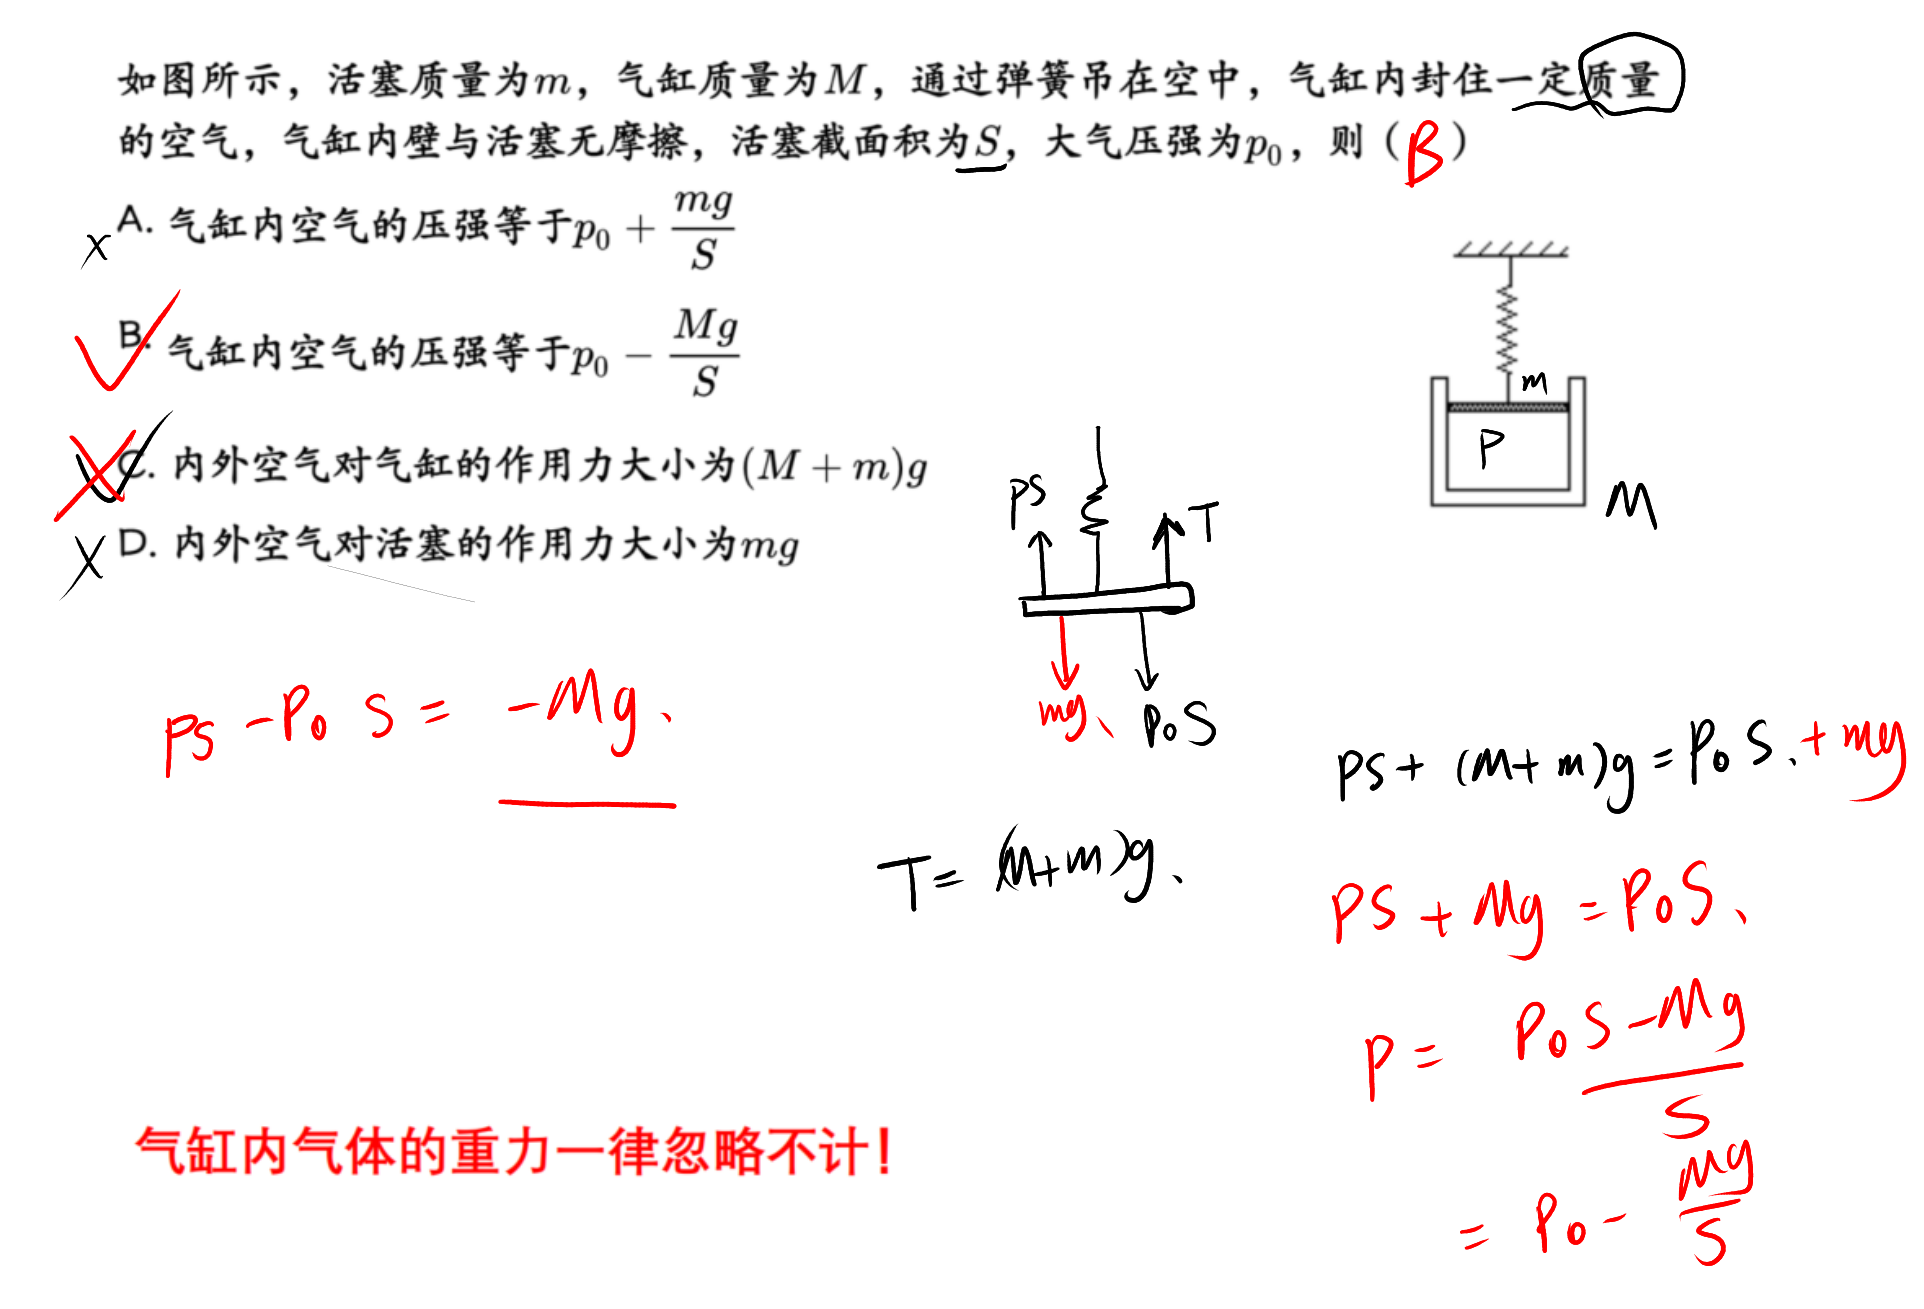 如图所示，活塞质量为m，气缸质量为M，通过弹簧吊在空中，气缸内封住一定质量
的空气，气缸内壁与活塞无摩擦，活塞截面积为S，大气压强为p₀，则（B）
x A. 气缸内空气的压强等于p₀ + mg/S
B. 气缸内空气的压强等于p₀ − Mg/S
C. 内外空气对气缸的作用力大小为(M + m)g
x D. 内外空气对活塞的作用力大小为mg
m
P
M
PS
T
mg、
P₀S
PS − P₀ S = −Mg、
PS + (M+m)g = P₀ S、+ mg
T = (M+m)g、
PS + Mg = P₀S、
P = P₀S − Mg / S
= P₀ − Mg/S
气缸内气体的重力一律忽略不计！